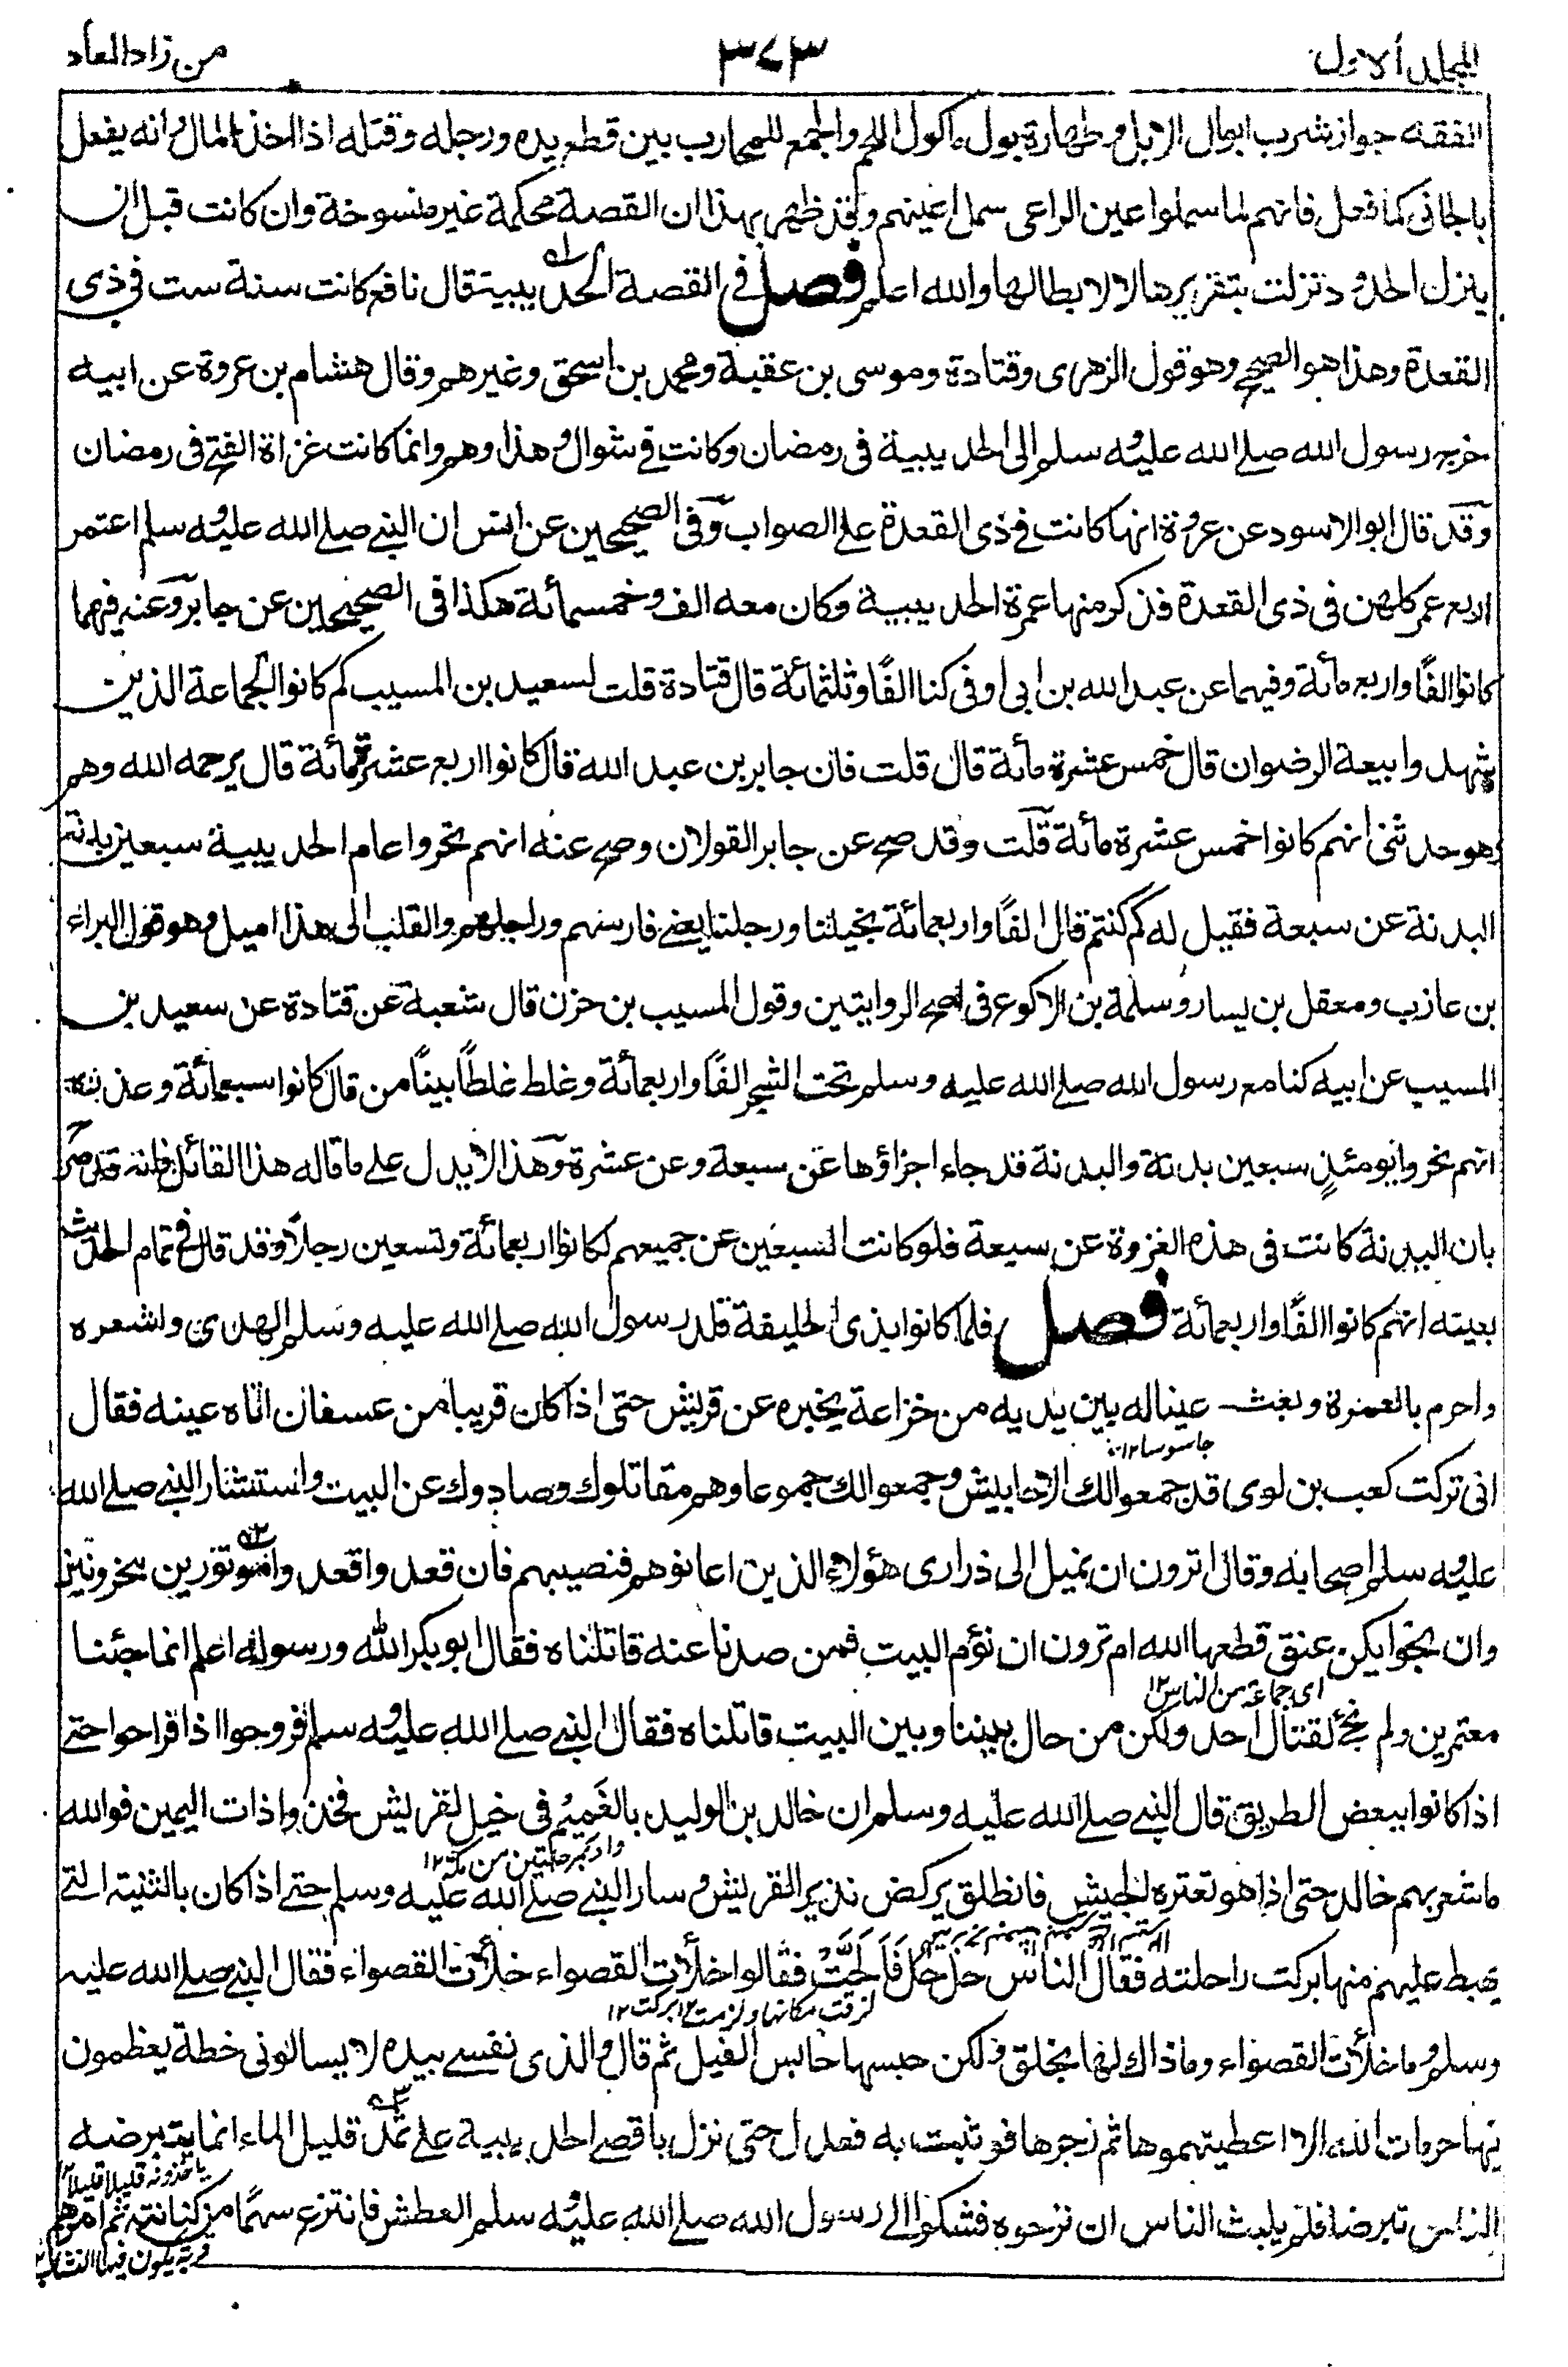 المجلد الاول
٣٧٣
من زاد المعاد
الفقه جواز شرب ابوال الابل وطهارة بول ماكول اللحم والجمع للمحارب بين قطع يده ورجله وقتله اذا اخذ المال وانه يفعل
بالجاني كما فعل فانهم لما سملوا عين الراعي سمل اعينهم وقد ظهر بهذا ان القصة محكمة غير منسوخة وان كانت قبل ان
ينزل الحدود نزلت بتقريرها لا لابطالها والله اعلم فصل في القصة الحديبية قال نافع كانت سنة ست في ذي
القعدة وهذا هو الصحيح وهو قول الزهري وقتادة وموسى بن عقبة ومحمد بن اسحق وغيرهم وقال هشام بن عروة عن ابيه
خرج رسول الله صلے الله عليه وسلم الى الحديبية في رمضان وكانت في شوال وهذا وهم وانما كانت غزاة الفتح في رمضان
وقد قال ابو الاسود عن عروة انها كانت في ذي القعدة على الصواب وفي الصحيحين عن انس ان النبي صلے الله عليه وسلم اعتمر
اربع عمر كلهن في ذي القعدة فذكر منها عمرة الحديبية وكان معه الف وخمسمائة هكذا في الصحيحين عن جابر وعنه فيهما
كانوا الفًا واربع مائة وفيهما عن عبد الله بن ابي اوفى كنا الفًا وثلثمائة قال قتادة قلت لسعيد بن المسيب كم كانوا الجماعة الذين
شهدوا بيعة الرضوان قال خمس عشرة مائة قال قلت فان جابر بن عبد الله قال كانوا اربع عشرة مائة قال يرحمه الله وهم
وهو حدثني انهم كانوا خمس عشرة مائة قلت وقد صح عن جابر القولان وصح عنه انهم نحروا عام الحديبية سبعين بدنة
البدنة عن سبعة فقيل له كم كنتم قال الفًا واربعمائة بخيلنا ورجلنا يعني فارسهم وراجلهم والقلب الى هذا اميل وهو قول البراء
بن عازب ومعقل بن يسار وسلمة بن الاكوع في اصح الروايتين وقول المسيب بن حزن قال شعبة عن قتادة عن سعيد بن
المسيب عن ابيه كنا مع رسول الله صلے الله عليه وسلم تحت الشجر الفًا واربعمائة وغلط غلطًا بينًا من قال كانوا سبعمائة وعذره
انهم نحروا يومئذٍ سبعين بدنة والبدنة قد جاء اجزاؤها عن سبعة وعن عشرة وهذا لا يدل على ما قاله هذا القائل فانه قد صرح
بان البدنة كانت في هذه الغزوة عن سبعة فلو كانت السبعين عن جميعهم لكانوا اربعمائة وتسعين رجلاً وقد قال في تمام الحديث
بعينه انهم كانوا الفًا واربعمائة فصل فلما كانوا بذي الحليفة قلد رسول الله صلے الله عليه وسلم الهدي واشعره
واحرم بالعمرة وبعث عينا له بين يديه من خزاعة يخبره عن قريش حتى اذا كان قريبا من عسفان اتاه عينه فقال
جاسوسا ١٢
اني تركت كعب بن لوي قد جمعوا لك الاحابيش وجمعوا لك جموعا وهم مقاتلوك وصادوك عن البيت واستشار النبي صلے الله
عليه وسلم اصحابه وقال اترون ان نميل الى ذراري هؤلاء الذين اعانوهم فنصيبهم فان قعدوا قعدوا موتورين محزونين
وان نجوا يكن عنق قطعها الله ام ترون ان نؤم البيت فمن صدنا عنه قاتلناه فقال ابو بكر الله ورسوله اعلم انما جئنا
اى جماعة من الناس ١٢
معتمرين ولم نجئ لقتال احد ولكن من حال بيننا وبين البيت قاتلناه فقال النبي صلے الله عليه وسلم فروحوا اذا فراحوا حتى
اذا كانوا ببعض الطريق قال النبي صلے الله عليه وسلم ان خالد بن الوليد بالغميم في خيل لقريش فخذوا ذات اليمين فوالله
واد بمرحلتين من مكة ١٢
ما شعر بهم خالد حتى اذا هو بقترة الجيش فانطلق يركض نذير القريش وسار النبي صلے الله عليه وسلم حتى اذا كان بالثنية التي
يهبط عليهم منها بركت راحلته فقال الناس حل حل فالحت فقالوا خلأت القصواء خلأت القصواء فقال النبي صلے الله عليه
لزقت مكانها ولزمت ١٢ بركت ١٢
وسلم وما خلأت القصواء وما ذاك لها بخلق ولكن حبسها حابس الفيل ثم قال والذي نفسي بيده لا يسالوني خطة يعظمون
فيها حرمات الله الا اعطيتهموها ثم زجرها فوثبت به فعدل حتى نزل باقصى الحديبية على ثمد قليل الماء انما يتبرضه
ياخذونه قليلا قليلا ١٢
الناس تبرضا فلم يلبث الناس ان نزحوه فشكوا الى رسول الله صلے الله عليه وسلم العطش فانتزع سهمًا من كنانته ثم امرهم